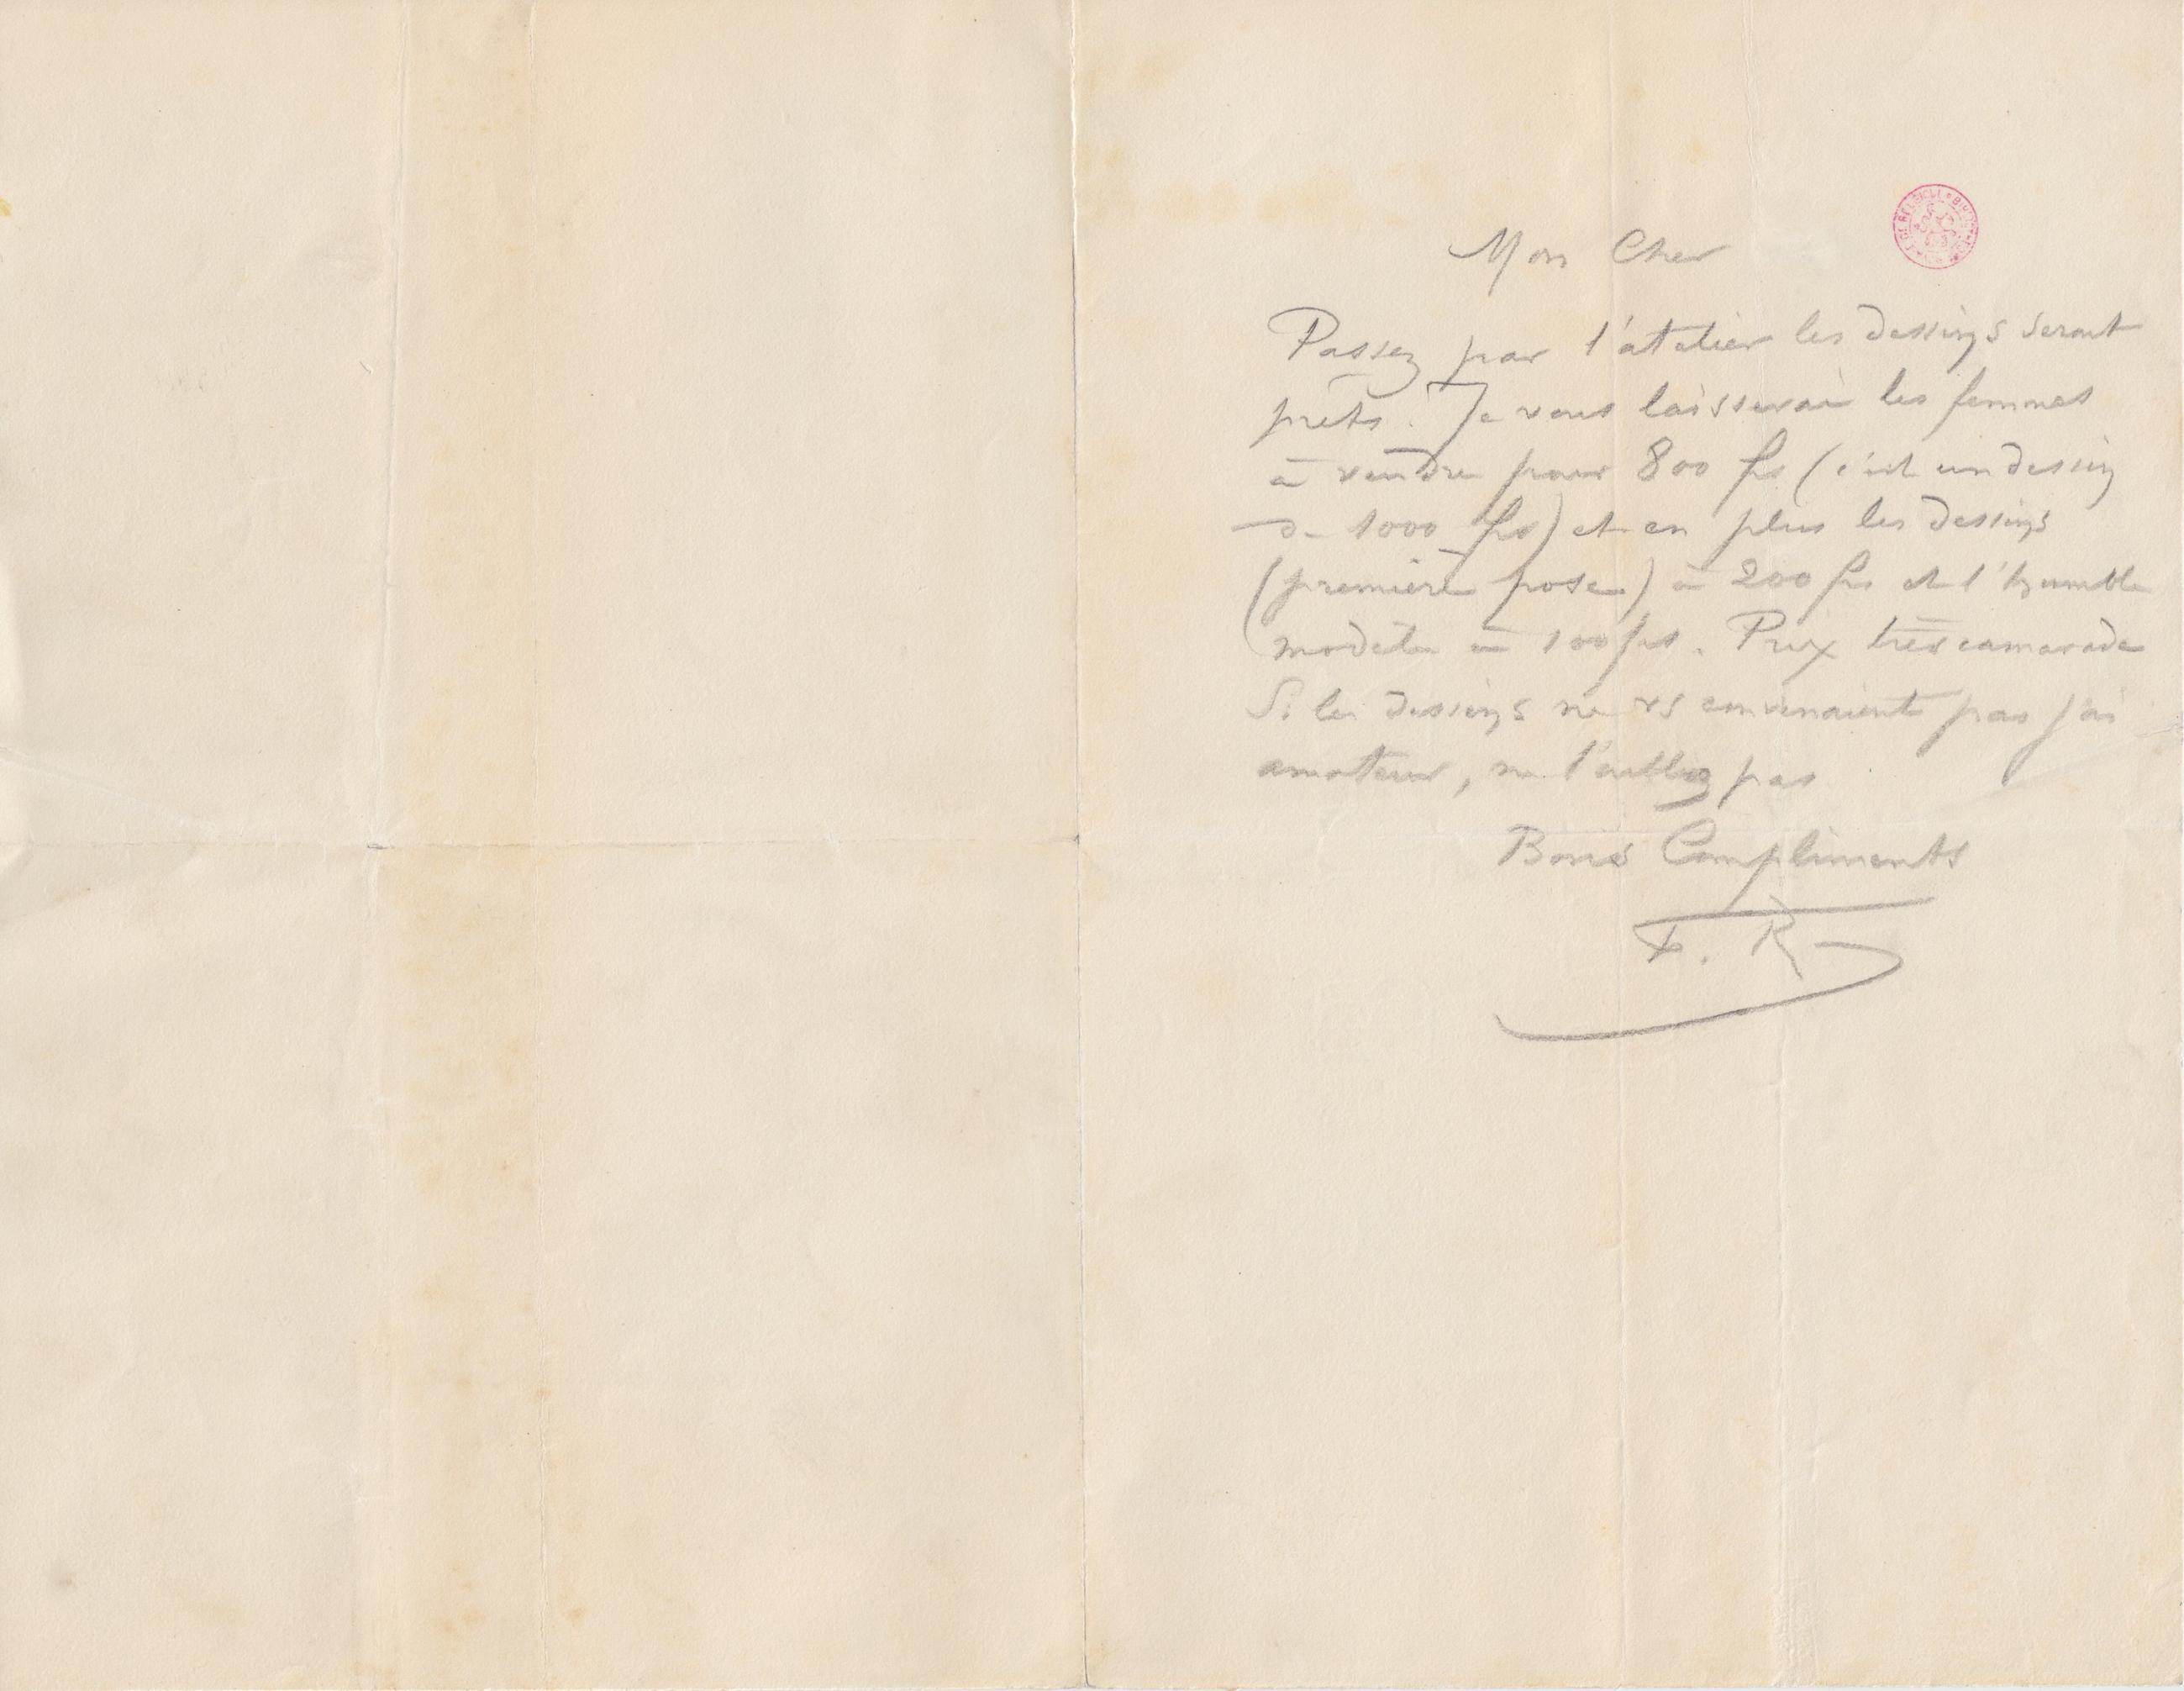 Mon Cher
Passez par l'atelier les dessins seront
prêts. Je vous laisserai les femmes
à vendre pour 800 frs (c'est un dessin
de 1000 frs) et en plus les dessins
(première pose) à 200 frs et l'humble
modèle à 100 frs. Prix très camarade
Si les dessins ne vs convenaient pas j'ai
amateur, ne l'oubliez pas
Bons Compliments
F. R